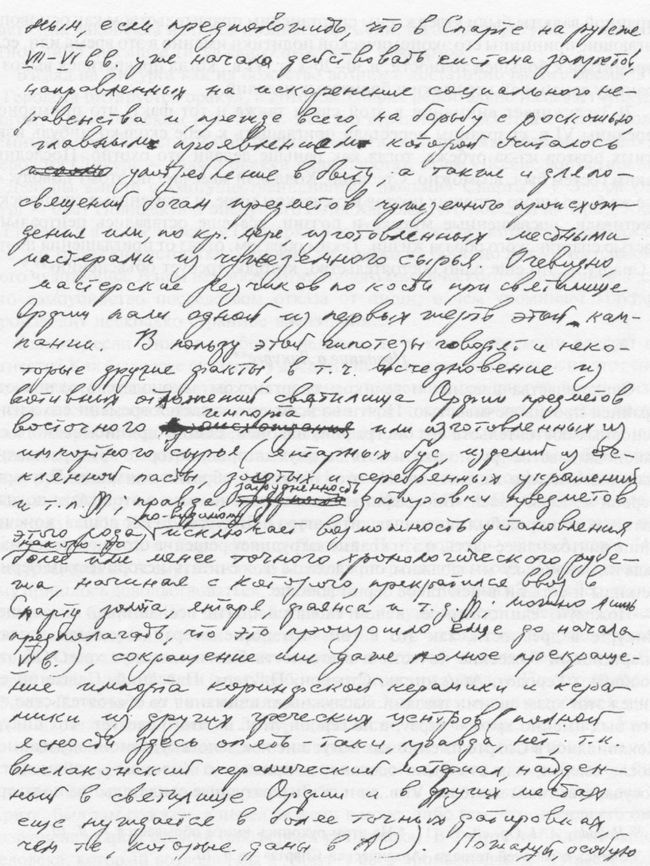 ным, если предположить, что в Спарте на рубеже
VII–VI вв. уже начала действовать система запретов,
направленных на искоренение социального не-
равенства и прежде всего на борьбу с роскошью
главным проявлением которой считалось
употребление в быту, а также и для по-
священий богам предметов чужеземного происхож-
дения или по кр. мере изготовленных местными
мастерами из чужеземного сырья. Очевидно,
мастерские резчиков по кости при святилище
Орфии пали одной из первых жертв этой кам-
пании. В пользу этой гипотезы говорят и неко-
торые другие факты в т.ч. исчезновение из
вотивных отложений святилища Орфии предметов
импорта
восточного или изготовленных из
импортного сырья, янтарных бус, изделий из сте-
клянной пасты золотых и серебрянных украшений
затруднённость
и т.п. (правда датировки предметов
по-видимому
этого рода исключает возможность установления
более или менее точного хронологического рубе-
жа, начиная с которого прекратился ввоз в
Спарту золота, янтаря, фаянса и т.д., можно лишь
предполагать, что это произошло еще до начала
VI в.), сокращение или даже полное прекраще-
ние импорта коринфской керамики и кера-
мики из других греческих центров (полной
ясности здесь опять таки, правда нет, т.к.
внелаконский керамический материал, найден-
ный в святилище Орфии и в других местах
еще нуждается в более точных датировках
чем те которые даны в АО). Пожалуй, особую